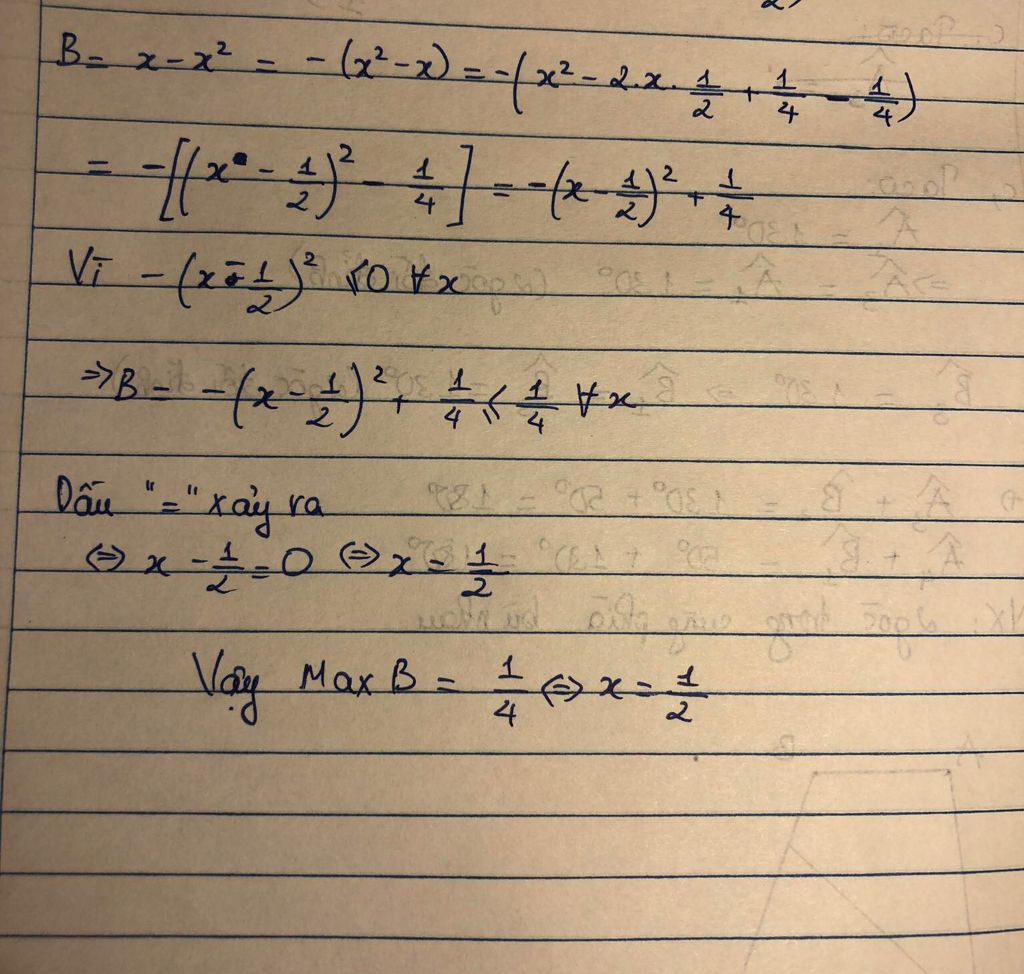 B = x - x² = -(x² - x) = -(x² - 2.x. 1/2 + 1/4 - 1/4)
= -[(x - 1/2)² - 1/4] = -(x - 1/2)² + 1/4
Vì -(x - 1/2)² ⩽ 0 ∀ x
⇒ B = -(x - 1/2)² + 1/4 ⩽ 1/4 ∀ x
Dấu "=" xảy ra
⇔ x - 1/2 = 0 ⇔ x = 1/2
Vậy Max B = 1/4 ⇔ x = 1/2